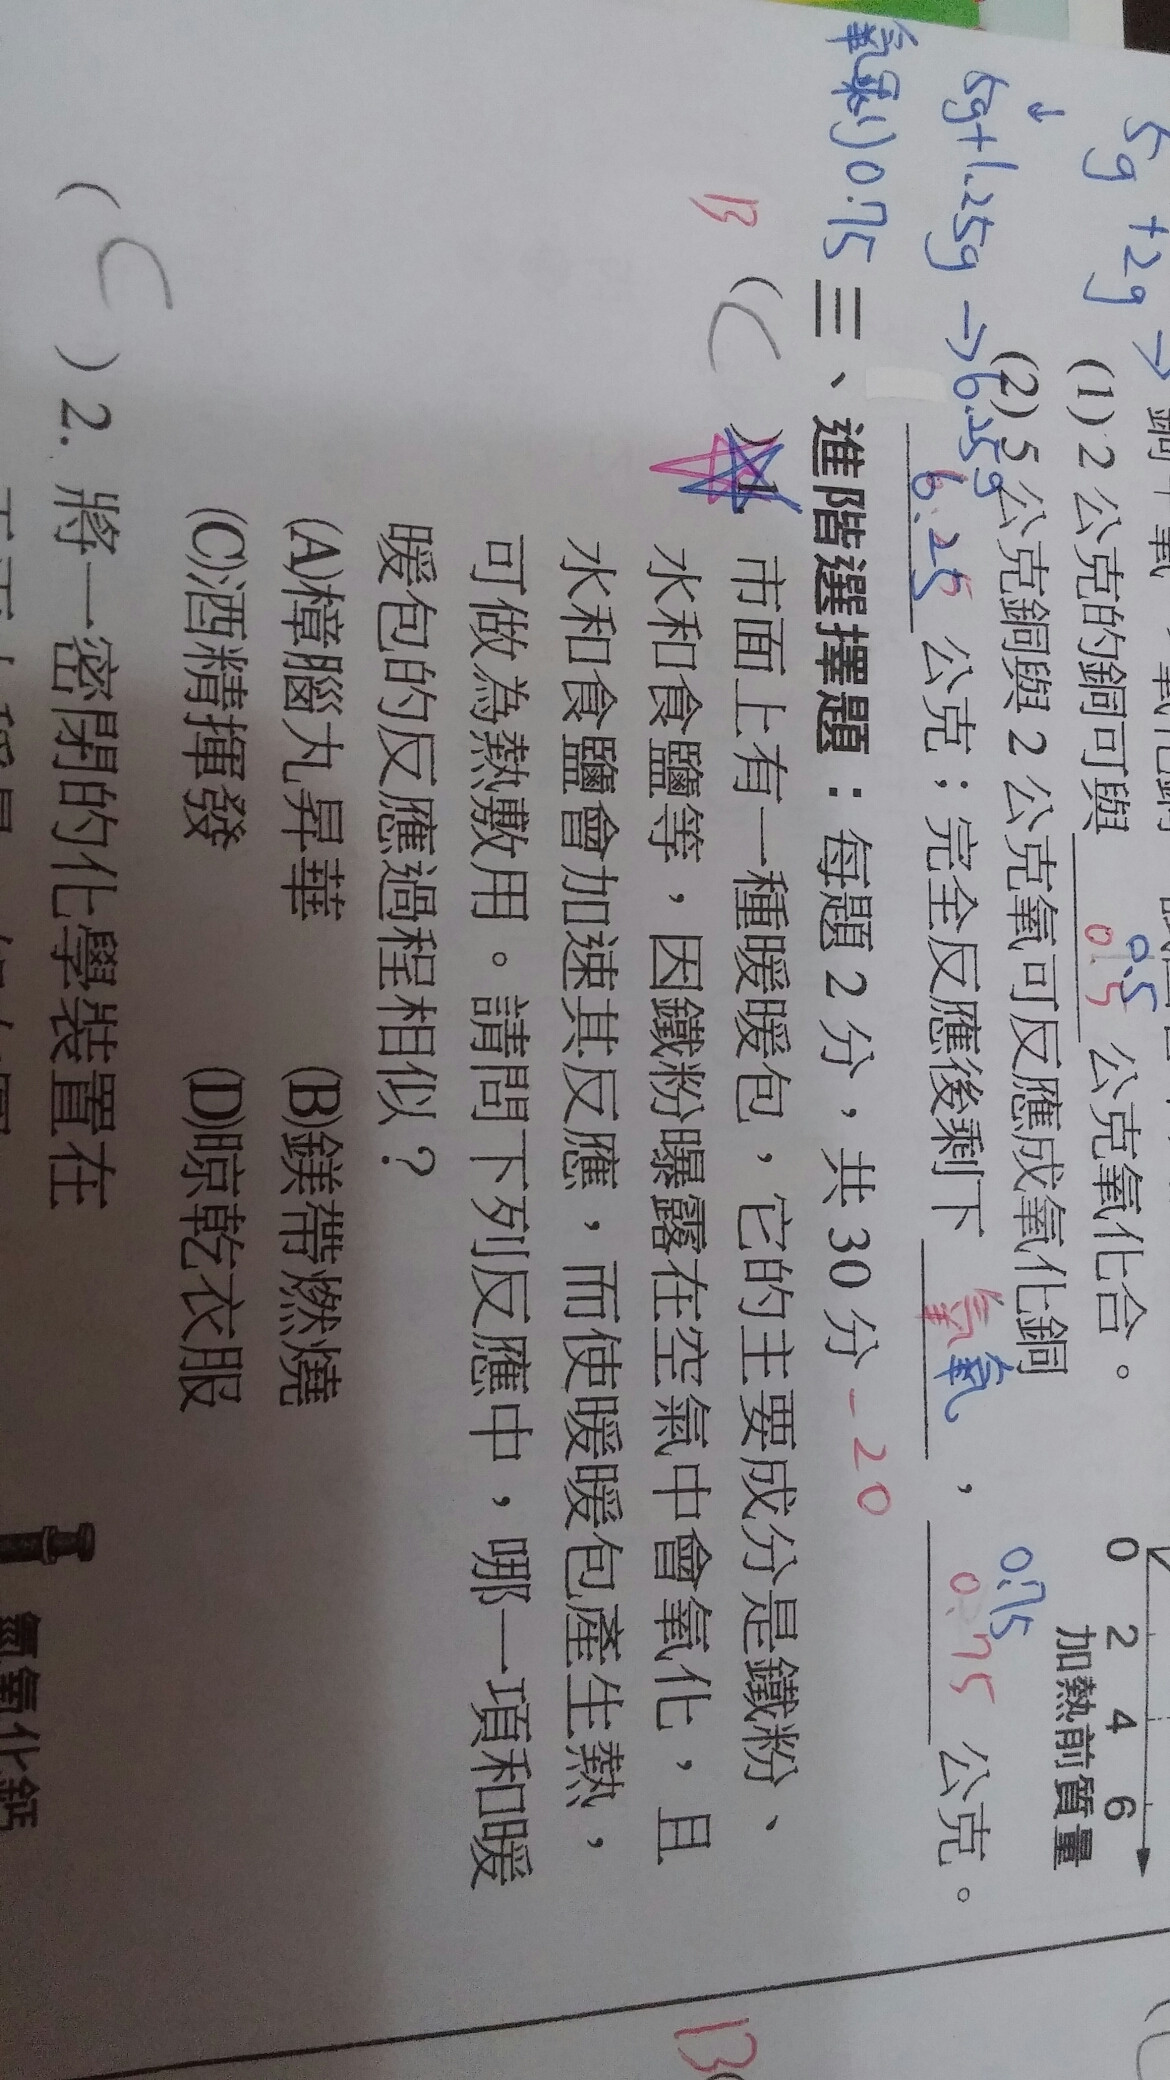 5g +2g →
↓
5g+1.25g → 6.25g
氧剩)0.75
(1) 2 公克的銅可與 0.5 0.5 公克氧化合。
(2) 5 公克銅與 2 公克氧可反應成氧化銅
6.25 公克；完全反應後剩下 氧 氧 ， 0.75 0.75 公克。
0 2 4 6
加熱前質量
三、進階選擇題：每題 2 分，共 30 分 -20
B ( C ) 1. 市面上有一種暖暖包，它的主要成分是鐵粉、
水和食鹽等，因鐵粉曝露在空氣中會氧化，且
水和食鹽會加速其反應，而使暖暖包產生熱，
可做為熱敷用。請問下列反應中，哪一項和暖
暖包的反應過程相似？
(A)樟腦丸昇華 (B)鎂帶燃燒
(C)酒精揮發 (D)晾乾衣服
( C ) 2. 將一密閉的化學裝置在
氫氧化鈣